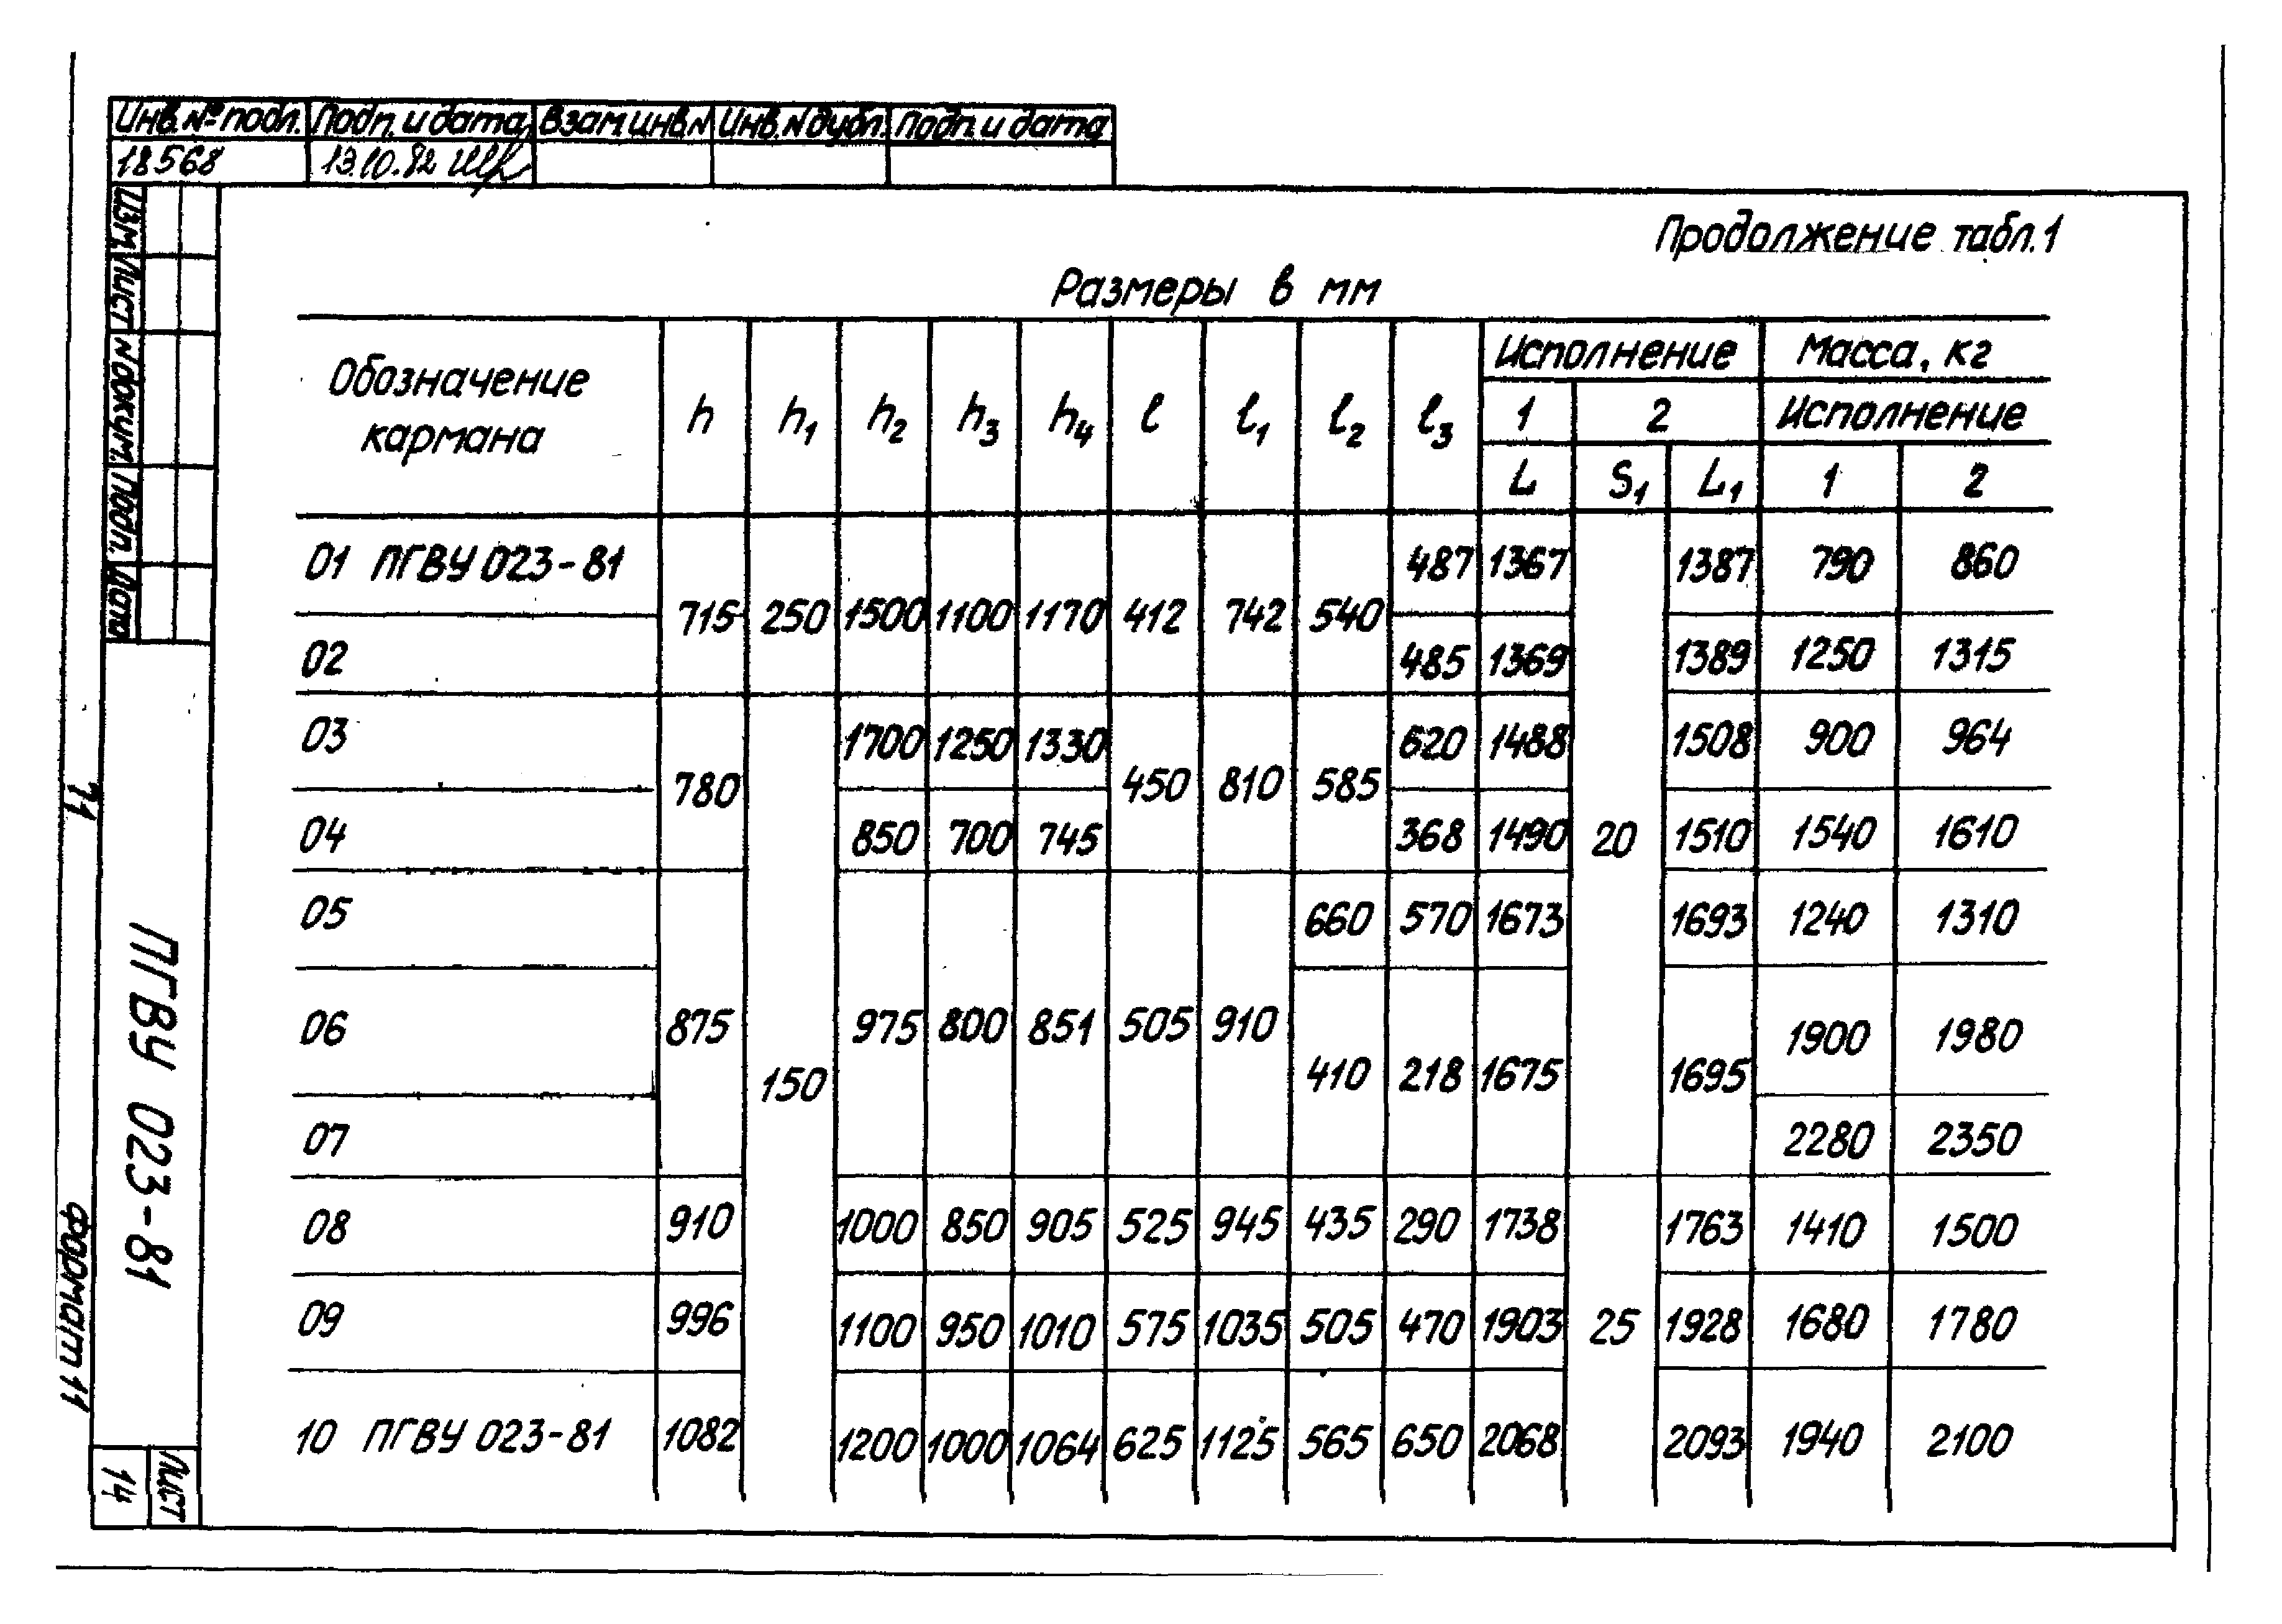 Инв.№подл. Подп. и дата Взам инв.№ Инв.№дубл. Подп. и дата
18568 13.10.82
Изм. Лист № докум. Подп. Дата
Продолжение табл.1
Размеры в мм
Обозначение кармана h h1 h2 h3 h4 l l1 l2 l3 Исполнение Масса, кг
1 2 Исполнение
L S1 L1 1 2
01 ПГВУ 023-81 715 250 1500 1100 1170 412 742 540 487 1367 20 1387 790 860
02 485 1369 1389 1250 1315
03 780 150 1700 1250 1330 450 810 585 620 1488 1508 900 964
04 850 700 745 368 1490 1510 1540 1610
05 875 975 800 851 505 910 660 570 1673 1693 1240 1310
06 410 218 1675 1695 1900 1980
07 2280 2350
08 910 1000 850 905 525 945 435 290 1738 25 1763 1410 1500
09 996 1100 950 1010 575 1035 505 470 1903 1928 1680 1780
10 ПГВУ 023-81 1082 1200 1000 1064 625 1125 565 650 2068 2093 1940 2100
71
ПГВУ 023-81
формат 11
Лист
14